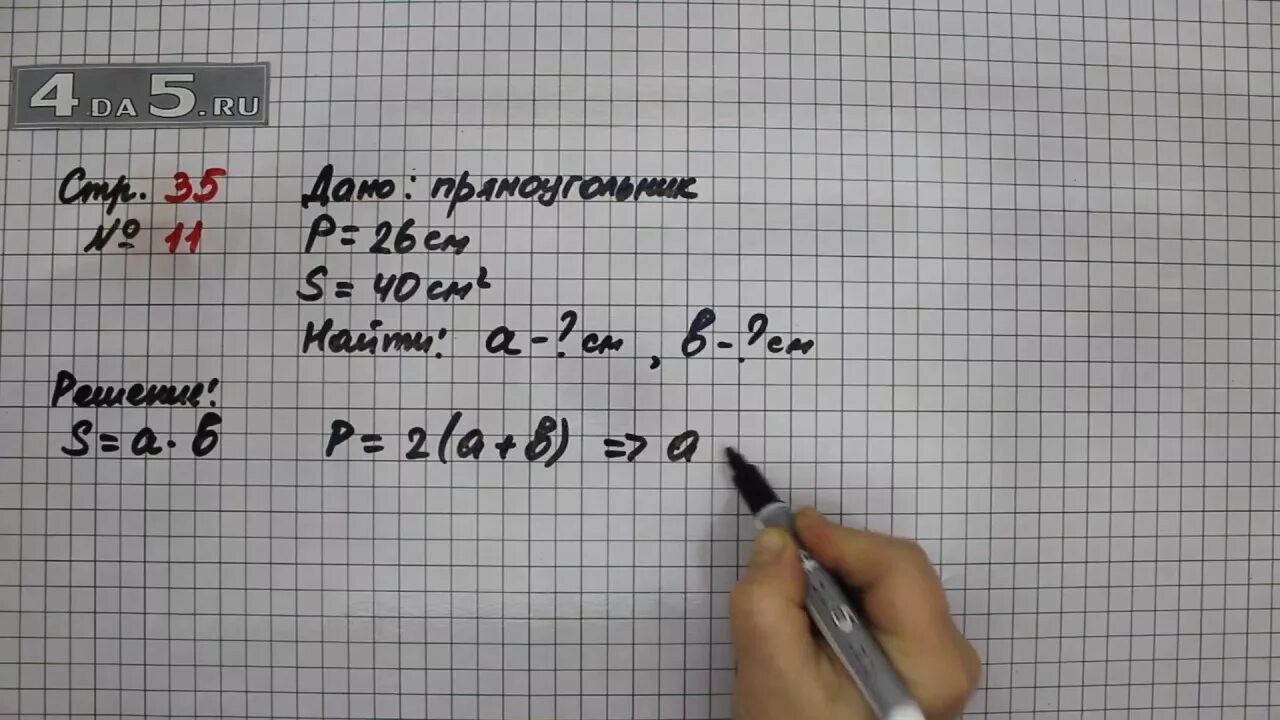 4DA5.RU
Стр. 35
№ 11
Дано: прямоугольник
P = 26 см
S = 40 см²
Найти: a - ? см, в - ? см
Решение:
S = a · б P = 2(a + в) => a